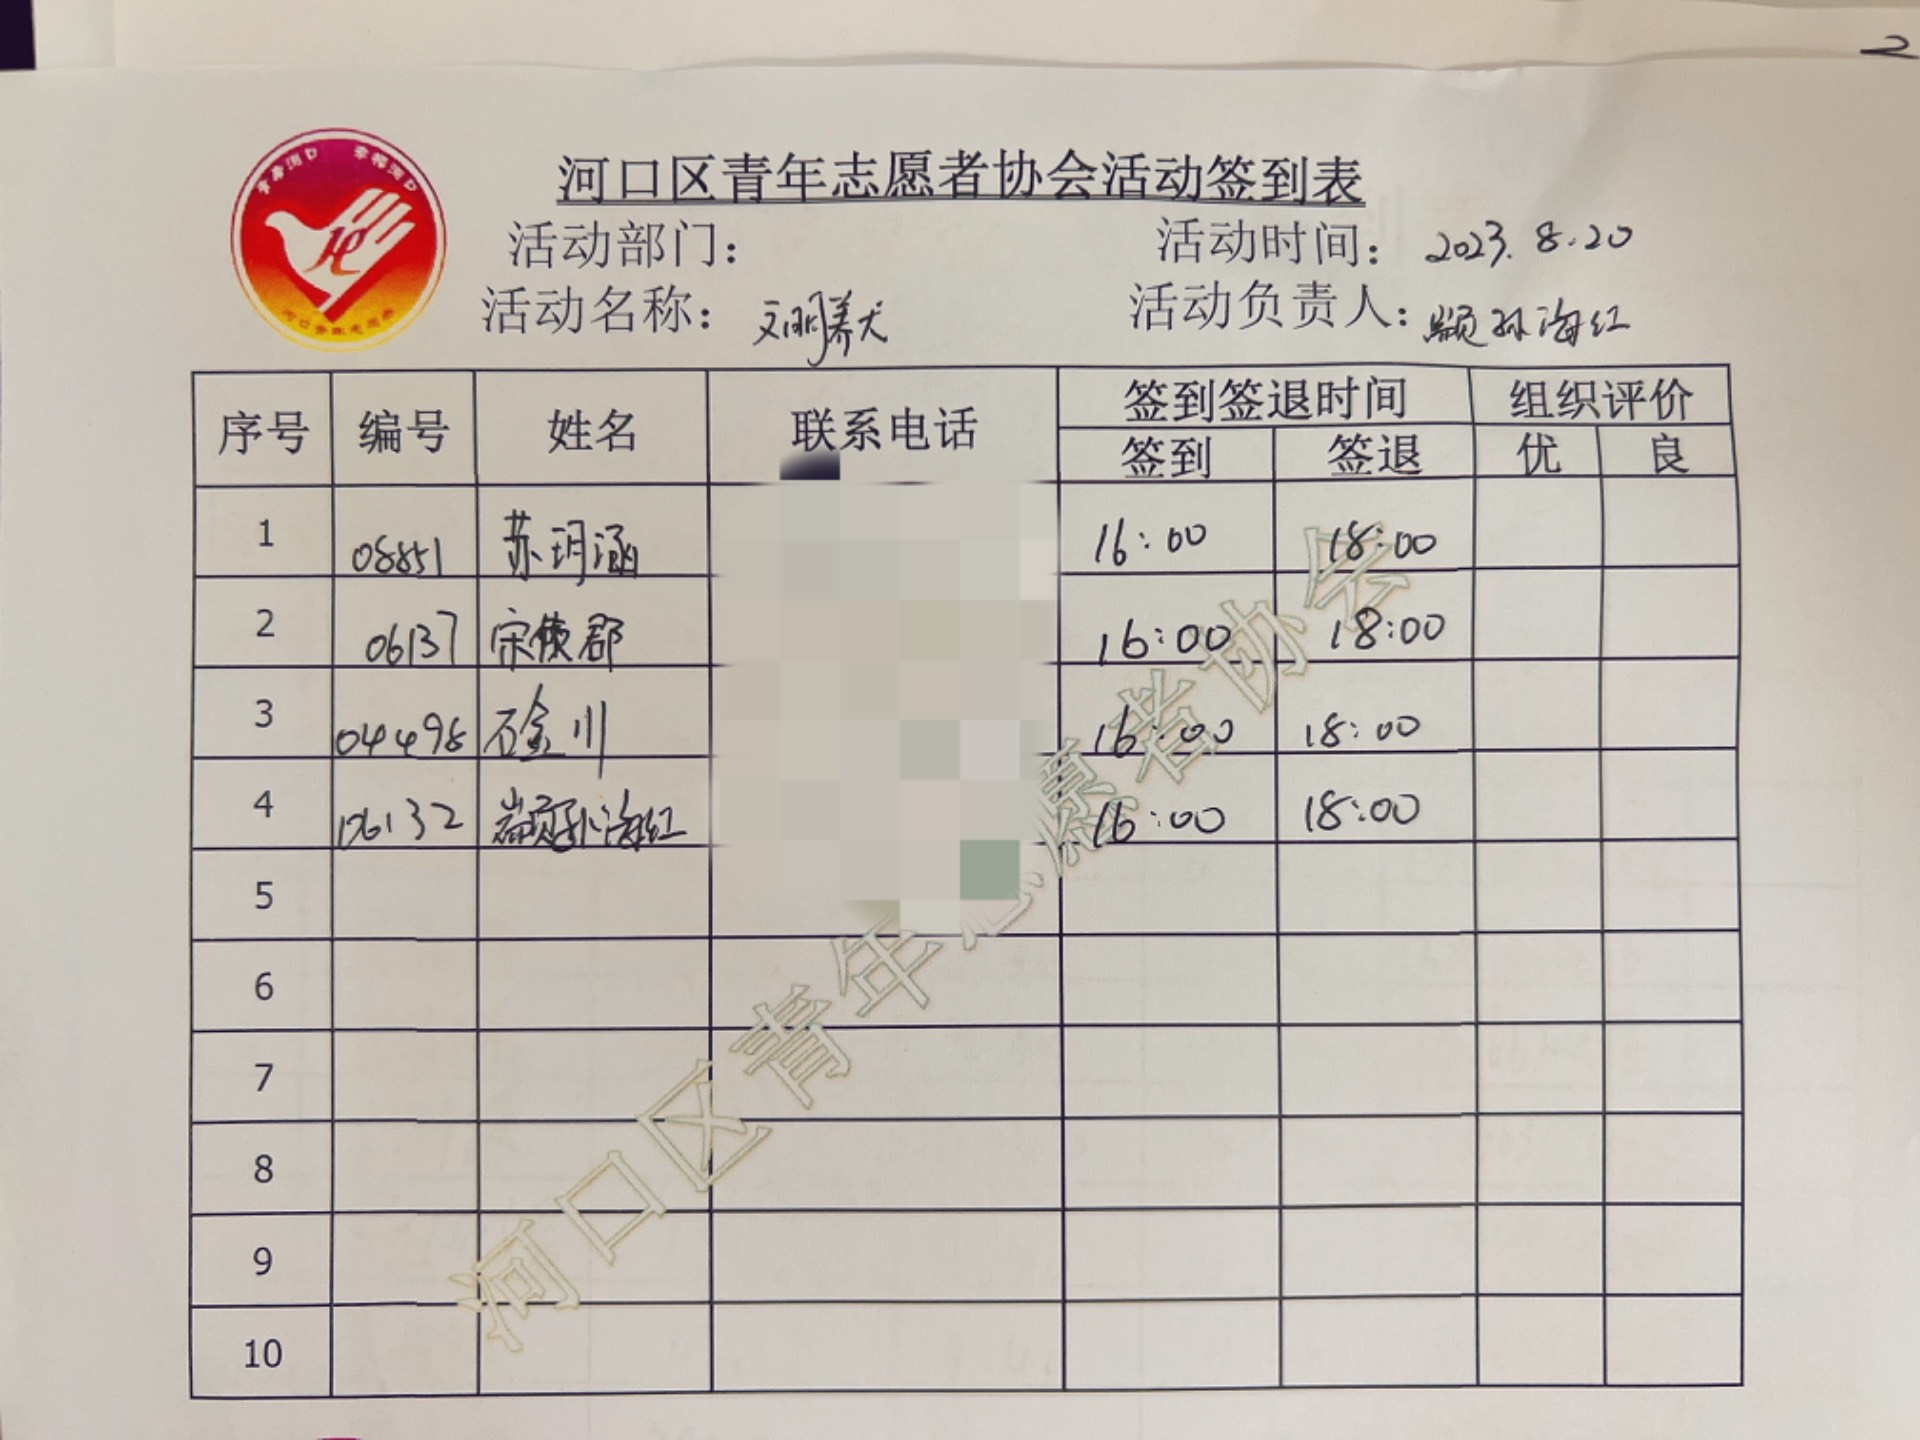 2
河口区青年志愿者协会活动签到表
活动部门：
活动时间：2023.8.20
活动名称：文明养犬
活动负责人：颛孙海红
序号 编号 姓名 联系电话 签到签退时间 组织评价
签到 签退 优 良
1 08851 苏玥涵 16:00 18:00
2 06137 宋 郡 16:00 18:00
3 04498 石金川 16:00 18:00
4 06132 颛孙海红 16:00 18:00
5
6
7
8
9
10
河口区青年志愿者协会